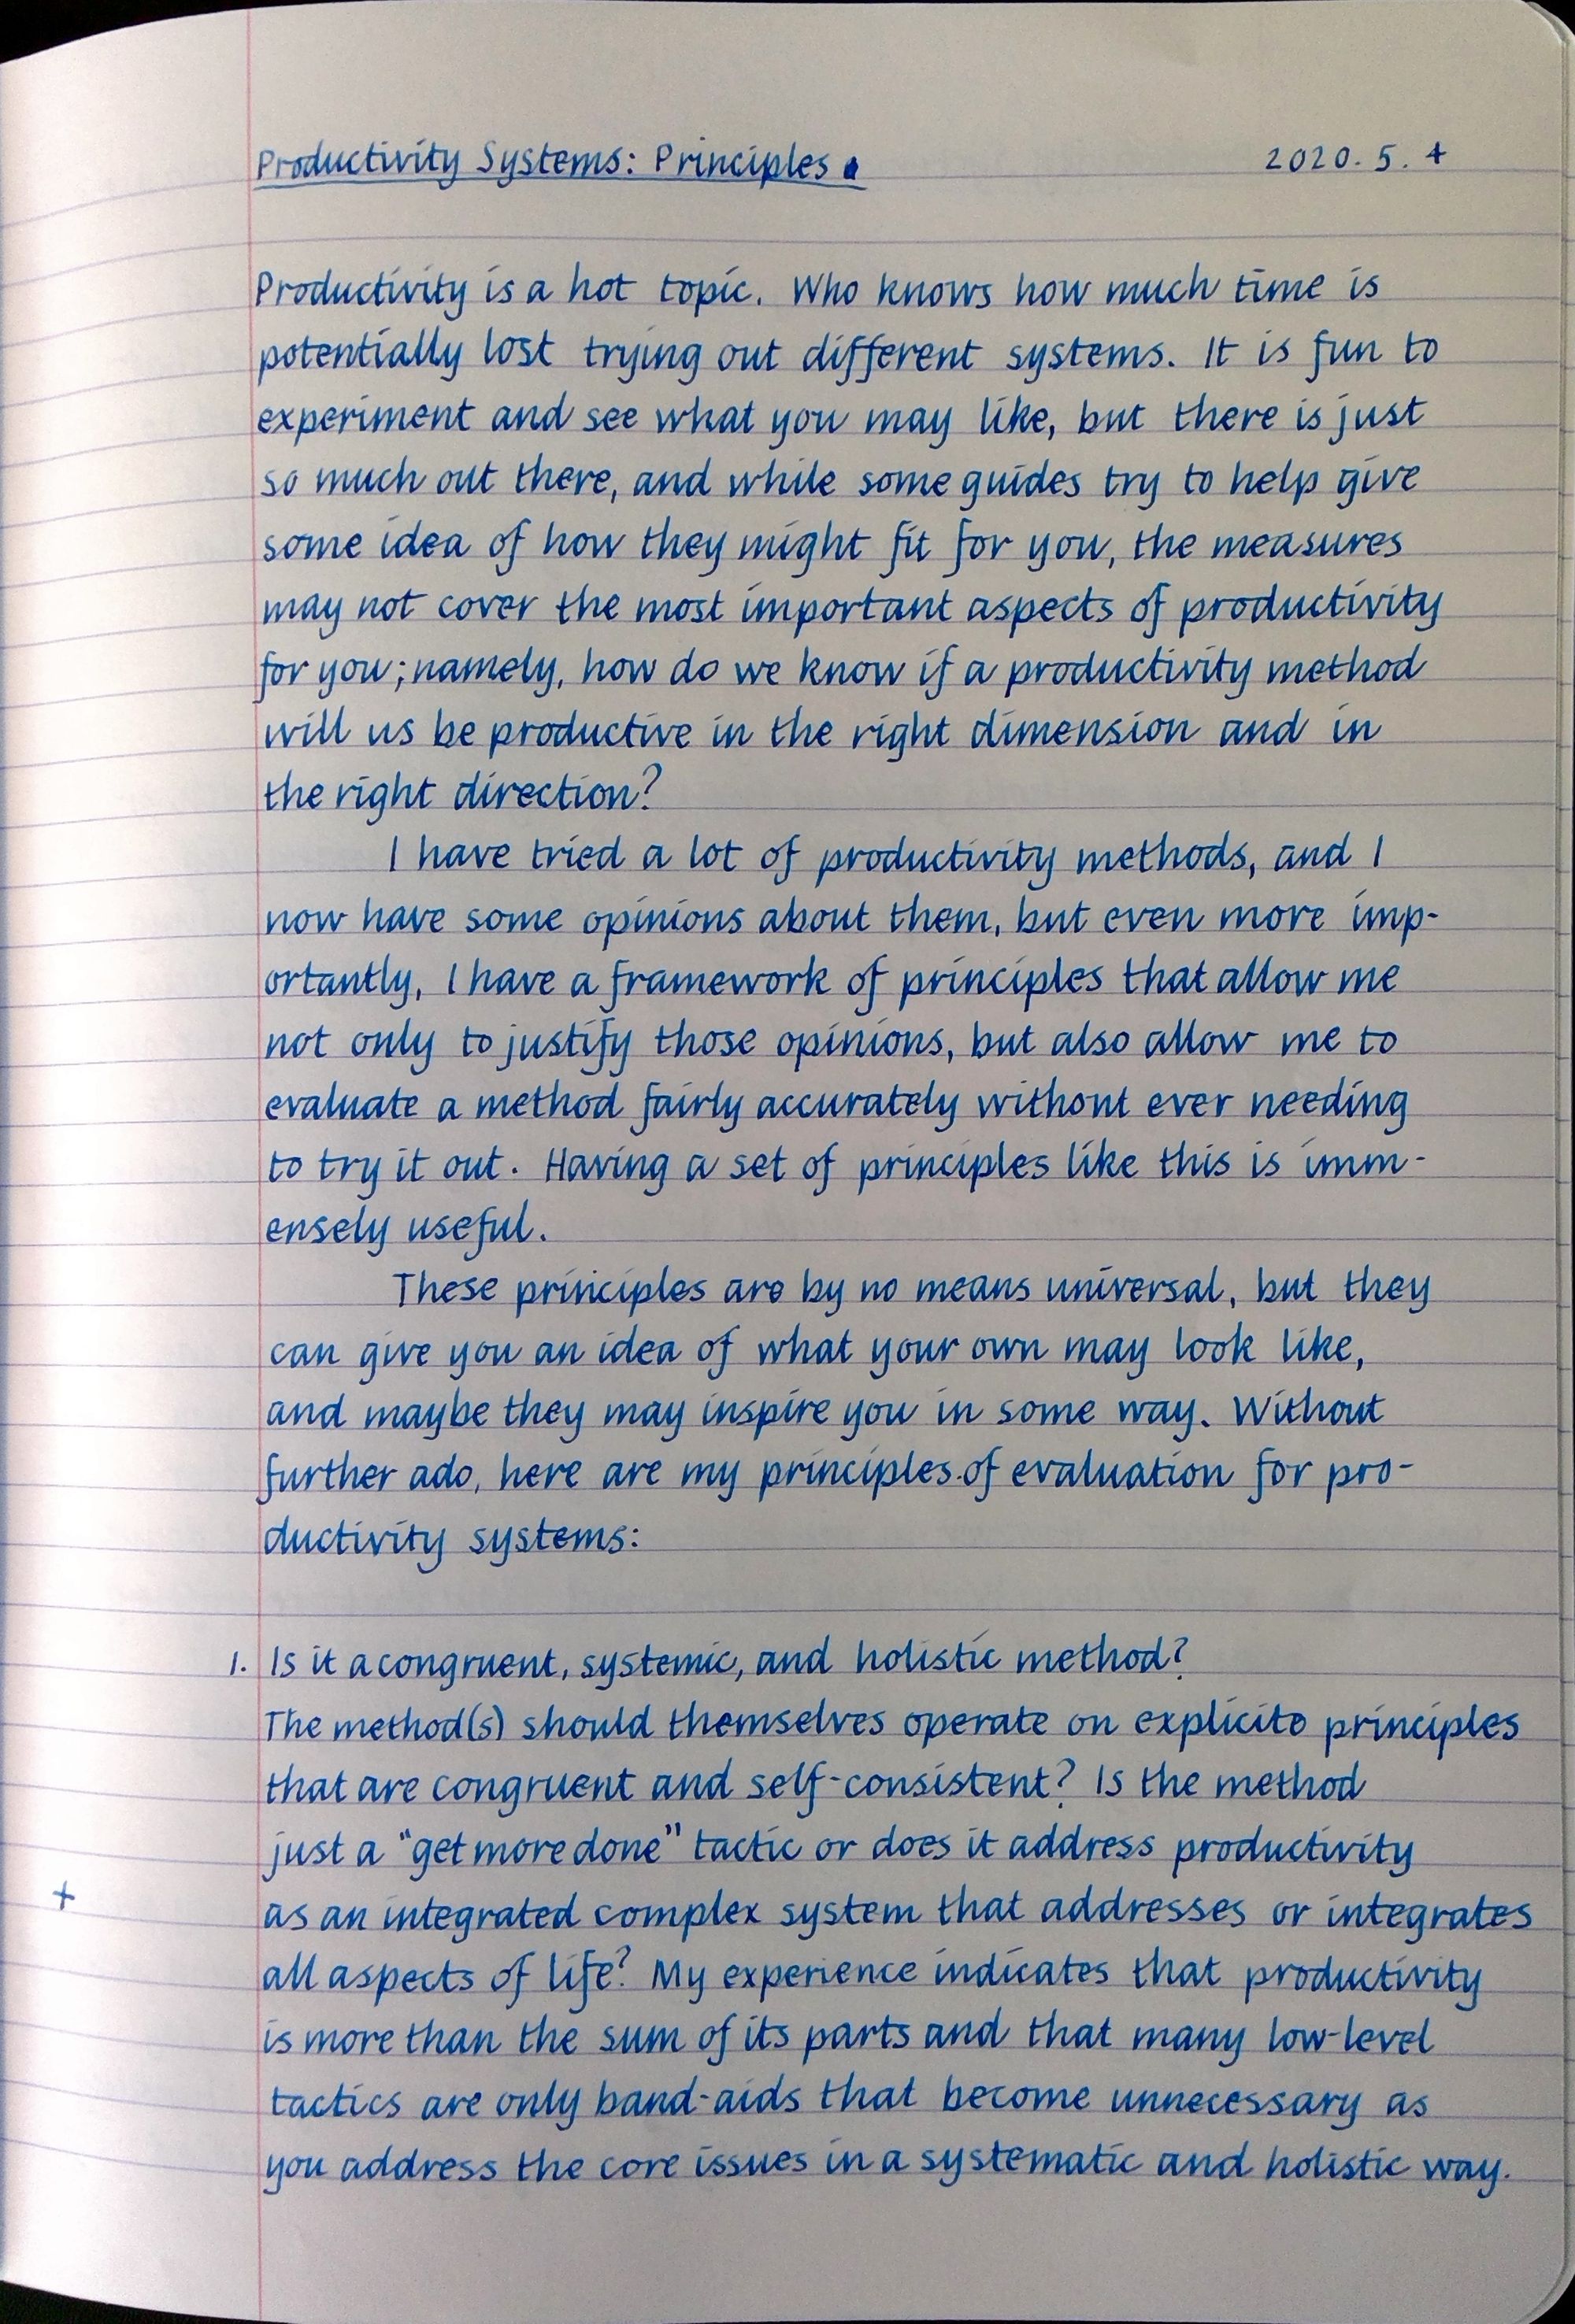 Productivity Systems: Principles.
2020.5.4
Productivity is a hot topic. Who knows how much time is
potentially lost trying out different systems. It is fun to
experiment and see what you may like, but there is just
so much out there, and while some guides try to help give
some idea of how they might fit for you, the measures
may not cover the most important aspects of productivity
for you; namely, how do we know if a productivity method
will us be productive in the right dimension and in
the right direction?
I have tried a lot of productivity methods, and I
now have some opinions about them, but even more imp-
ortantly, I have a framework of principles that allow me
not only to justify those opinions, but also allow me to
evaluate a method fairly accurately without ever needing
to try it out. Having a set of principles like this is imm-
ensely useful.
These principles are by no means universal, but they
can give you an idea of what your own may look like,
and maybe they may inspire you in some way. Without
further ado, here are my principles of evaluation for pro-
ductivity systems:
1. Is it a congruent, systemic, and holistic method?
The method(s) should themselves operate on explicito principles
that are congruent and self-consistent? Is the method
just a "get more done" tactic or does it address productivity
+
as an integrated complex system that addresses or integrates
all aspects of life? My experience indicates that productivity
is more than the sum of its parts and that many low-level
tactics are only band-aids that become unnecessary as
you address the core issues in a systematic and holistic way.